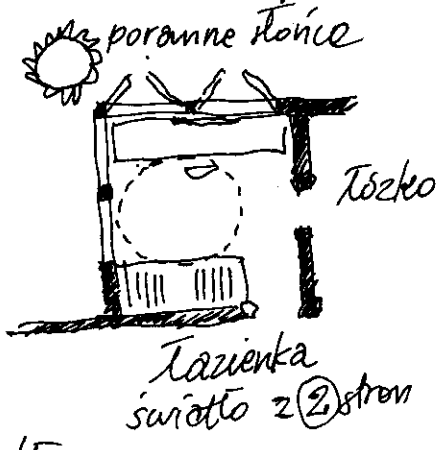 poranne słońce
Łóżko
Łazienka
światło z 2 stron